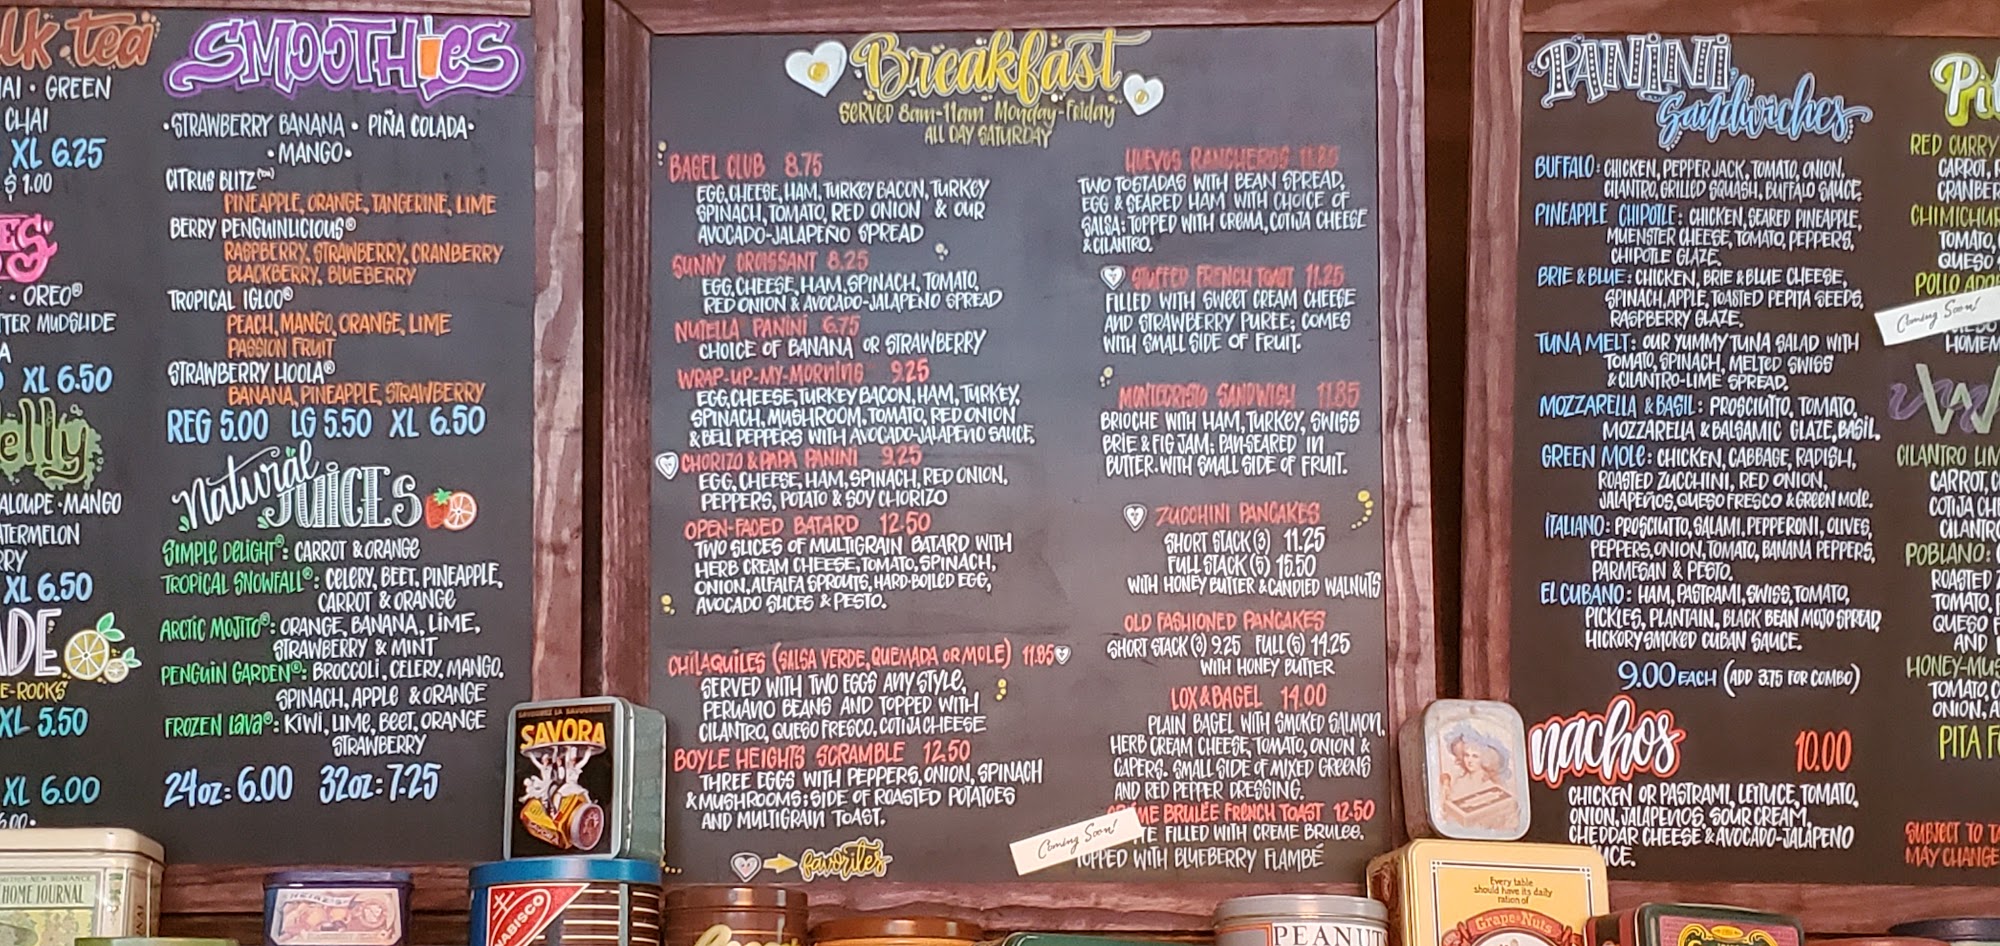 lk tea
HAI • GREEN
CHAI
XL 6.25
$ 1.00
• OREO®
TTER MUDSLIDE
XL 6.50
elly
ALOUPE • MANGO
ATERMELON
RRY
XL 6.50
ADE
E-ROCKS
XL 5.50
XL 6.00
SMOOTHIES
•STRAWBERRY BANANA • PIÑA COLADA•
•MANGO•
CITRUS BLITZ
PINEAPPLE, ORANGE, TANGERINE, LIME
BERRY PENGUINLICIOUS®
RASPBERRY, STRAWBERRY, CRANBERRY
BLACKBERRY, BLUEBERRY
TROPICAL IGLOO®
PEACH, MANGO, ORANGE, LIME
PASSION FRUIT
STRAWBERRY HOOLA®
BANANA, PINEAPPLE, STRAWBERRY
REG 5.00 LG 5.50 XL 6.50
Natural
JUICES
SIMPLE DELIGHT®: CARROT & ORANGE
TROPICAL SNOWFALL®: CELERY, BEET, PINEAPPLE,
CARROT & ORANGE
ARCTIC MOJITO®: ORANGE, BANANA, LIME,
STRAWBERRY & MINT
PENGUIN GARDEN®: BROCCOLI, CELERY, MANGO,
SPINACH, APPLE & ORANGE
FROZEN LAVA®: KIWI, LIME, BEET, ORANGE
STRAWBERRY
24oz: 6.00 32oz: 7.25
Breakfast
SERVED 8am-11am Monday-Friday
ALL DAY SATURDAY
BAGEL CLUB 8.75
EGG, CHEESE, HAM, TURKEY BACON, TURKEY
SPINACH, TOMATO, RED ONION & OUR
AVOCADO-JALAPEÑO SPREAD
SUNNY CROISSANT 8.25
EGG, CHEESE, HAM, SPINACH, TOMATO,
RED ONION & AVOCADO-JALAPEÑO SPREAD
NUTELLA PANINI 6.75
CHOICE OF BANANA OR STRAWBERRY
WRAP-UP-MY-MORNING 9.25
EGG, CHEESE, TURKEY BACON, HAM, TURKEY,
SPINACH, MUSHROOM, TOMATO, RED ONION
& BELL PEPPERS WITH AVOCADO-JALAPENO SAUCE,
CHORIZO & PAPA PANINI 9.25
EGG, CHEESE, HAM, SPINACH, RED ONION,
PEPPERS, POTATO & SOY CHORIZO
OPEN-FACED BATARD 12.50
TWO SLICES OF MULTIGRAIN BATARD WITH
HERB CREAM CHEESE, TOMATO, SPINACH,
ONION, ALFALFA SPROUTS, HARD-BOILED EGG,
AVOCADO SLICES & PESTO.
CHILAQUILES (SALSA VERDE, QUEMADA OR MOLE) 11.85
SERVED WITH TWO EGGS ANY STYLE,
PERUANO BEANS AND TOPPED WITH
CILANTRO, QUESO FRESCO, COTIJA CHEESE
BOYLE HEIGHTS SCRAMBLE 12.50
THREE EGGS WITH PEPPERS, ONION, SPINACH
& MUSHROOMS; SIDE OF ROASTED POTATOES
AND MULTIGRAIN TOAST.
favorites
HUEVOS RANCHEROS 11.85
TWO TOSTADAS WITH BEAN SPREAD,
EGG & SEARED HAM WITH CHOICE OF
SALSA; TOPPED WITH CREMA, COTIJA CHEESE
& CILANTRO.
STUFFED FRENCH TOAST 11.25
FILLED WITH SWEET CREAM CHEESE
AND STRAWBERRY PUREE; COMES
WITH SMALL SIDE OF FRUIT.
MONTECRISTO SANDWICH 11.85
BRIOCHE WITH HAM, TURKEY, SWISS
BRIE & FIG JAM; PAN-SEARED IN
BUTTER. WITH SMALL SIDE OF FRUIT.
ZUCCHINI PANCAKES
SHORT STACK (3) 11.25
FULL STACK (5) 15.50
WITH HONEY BUTTER & CANDIED WALNUTS
OLD FASHIONED PANCAKES
SHORT STACK (3) 9.25 FULL (5) 14.25
WITH HONEY BUTTER
LOX & BAGEL 14.00
PLAIN BAGEL WITH SMOKED SALMON,
HERB CREAM CHEESE, TOMATO, ONION &
CAPERS. SMALL SIDE OF MIXED GREENS
AND RED PEPPER DRESSING.
ME BRULÉE FRENCH TOAST 12.50
TE FILLED WITH CREME BRULEE,
TOPPED WITH BLUEBERRY FLAMBÉ
Coming Soon!
PANINI
Sandwiches
BUFFALO: CHICKEN, PEPPER JACK, TOMATO, ONION,
CILANTRO, GRILLED SQUASH, BUFFALO SAUCE.
PINEAPPLE CHIPOTLE: CHICKEN, SEARED PINEAPPLE,
MUENSTER CHEESE, TOMATO, PEPPERS,
CHIPOTLE GLAZE.
BRIE & BLUE: CHICKEN, BRIE & BLUE CHEESE,
SPINACH, APPLE, TOASTED PEPITA SEEDS,
RASPBERRY GLAZE.
TUNA MELT: OUR YUMMY TUNA SALAD WITH
TOMATO, SPINACH, MELTED SWISS
& CILANTRO-LIME SPREAD.
MOZZARELLA & BASIL: PROSCIUTTO, TOMATO,
MOZZARELLA & BALSAMIC GLAZE, BASIL.
GREEN MOLE: CHICKEN, CABBAGE, RADISH,
ROASTED ZUCCHINI, RED ONION,
JALAPEÑOS, QUESO FRESCO & GREEN MOLE.
ITALIANO: PROSCIUTTO, SALAMI, PEPPERONI, OLIVES,
PEPPERS, ONION, TOMATO, BANANA PEPPERS,
PARMESAN & PESTO.
EL CUBANO: HAM, PASTRAMI, SWISS, TOMATO,
PICKLES, PLANTAIN, BLACK BEAN MOJO SPREAD,
HICKORY SMOKED CUBAN SAUCE.
9.00 EACH (ADD 3.75 FOR COMBO)
nachos 10.00
CHICKEN OR PASTRAMI, LETTUCE, TOMATO,
ONION, JALAPEÑOS, SOUR CREAM,
CHEDDAR CHEESE & AVOCADO-JALAPEÑO
UCE.
Pi
RED CURRY
CARROT, R
CRANBER
CHIMICHUR
TOMATO,
QUESO
POLLO ADO
Coming Soon!
HOMEM
W
CILANTRO LIM
CARROT, C
COTIJA CHE
CILANTRO
POBLANO:
ROASTED
TOMATO,
QUESO F
AND
HONEY-MUS
TOMATO, C
ONION, A
PITA F
SUBJECT TO T
MAY CHANGE
SAVORA
HOME JOURNAL
NABISCO
PEANUT
Every table
should have its daily
ration of
Grape-Nuts